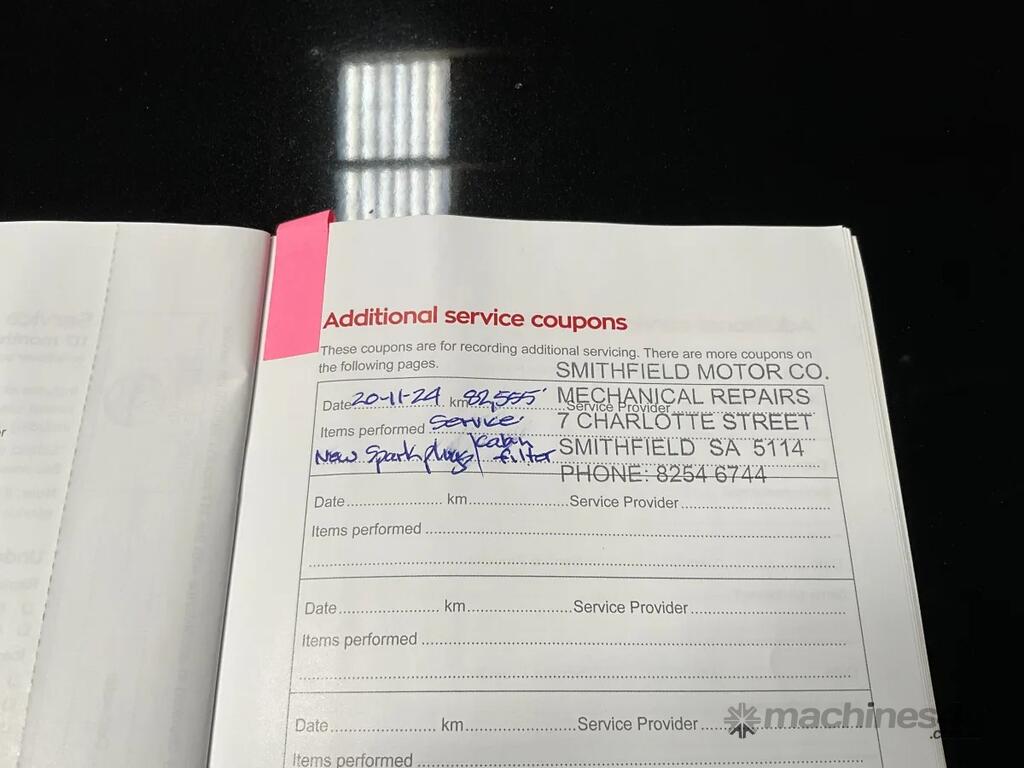 Additional service coupons
These coupons are for recording additional servicing. There are more coupons on
the following pages.
SMITHFIELD MOTOR CO.
MECHANICAL REPAIRS
7 CHARLOTTE STREET
SMITHFIELD SA 5114
PHONE: 8254 6744
Date 20-11-24 km 82,555 Service Provider
Items performed Service
New Spark plugs / Cabin filter
Date km Service Provider
Items performed
Date km Service Provider
Items performed
Date km Service Provider
Items performed
machines4u